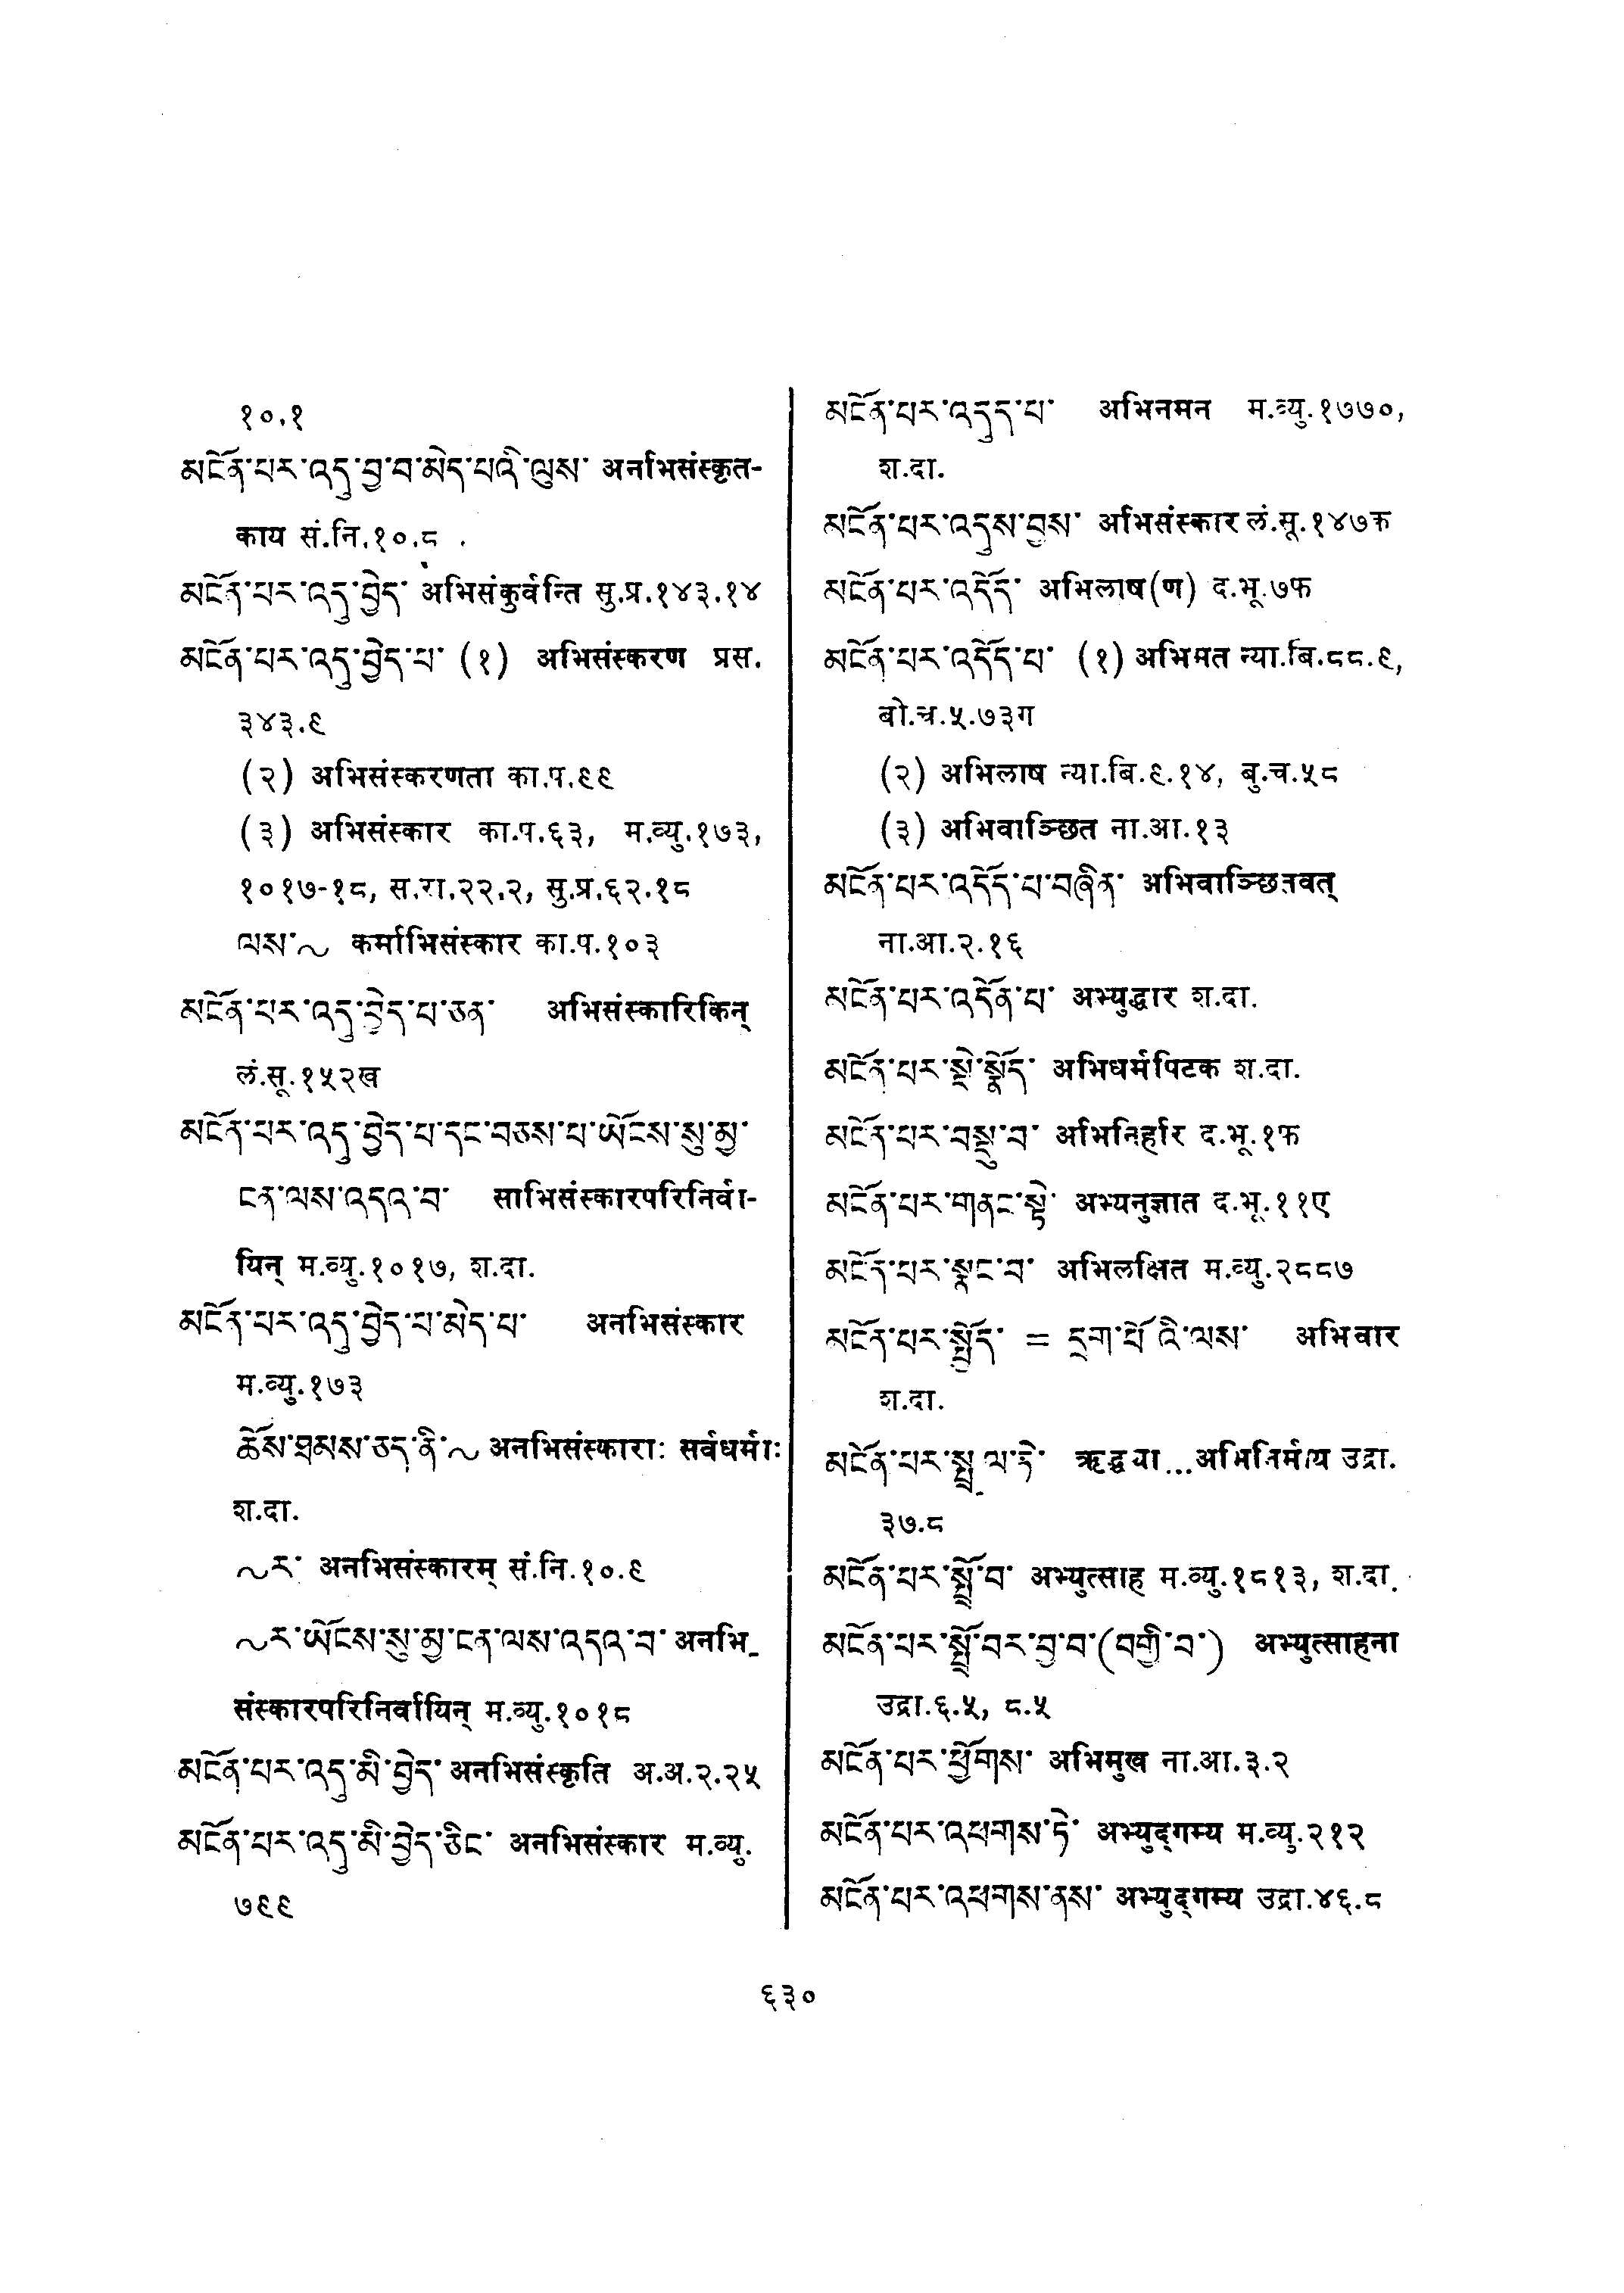 १०.१
མངོན་པར་འདུ་བྱ་བ་མེད་པའི་ལུས་ अनभिसंस्कृत-
काय सं.नि.१०.८
མངོན་པར་འདུ་བྱེད་ अभिसंकुर्वन्ति सु.प्र.१४३.१४
མངོན་པར་འདུ་བྱེད་པ་ (१) अभिसंस्करण प्रस.
३४३.९
(२) अभिसंस्करणता का.प.९९
(३) अभिसंस्कार का.प.६३, म.व्यु.१७३,
१०१७-१८, स.रा.२२.२, सु.प्र.६२.१८
ལས་~ कर्माभिसंस्कार का.प.१०३
མངོན་པར་འདུ་བྱེད་པ་ཅན་ अभिसंस्कारिकिन्
लं.सू.१५२ख
མངོན་པར་འདུ་བྱེད་པ་དང་བཅས་པ་ཡོངས་སུ་མྱ་
ངན་ལས་འདའ་བ་ साभिसंस्कारपरिनिर्वा-
यिन् म.व्यु.१०१७, श.दा.
མངོན་པར་འདུ་བྱེད་པ་མེད་པ་ अनभिसंस्कार
म.व्यु.१७३
ཆོས་ཐམས་ཅད་ནི་~ अनभिसंस्काराः सर्वधर्माः
श.दा.
~ར་ अनभिसंस्कारम् सं.नि.१०.९
~ར་ཡོངས་སུ་མྱ་ངན་ལས་འདའ་བ་ अनभि-
संस्कारपरिनिर्वायिन् म.व्यु.१०१८
མངོན་པར་འདུ་མི་བྱེད་ अनभिसंस्कृति अ.अ.२.२५
མངོན་པར་འདུ་མི་བྱེད་ཅིང་ अनभिसंस्कार म.व्यु.
७९९
མངོན་པར་འདུད་པ་ अभिनमन म.व्यु.१७७०,
श.दा.
མངོན་པར་འདུས་བྱས་ अभिसंस्कार लं.सू.१४७क
མངོན་པར་འདོད་ अभिलाष(ण) द.भू.७फ
མངོན་པར་འདོད་པ་ (१) अभिमत न्या.बि.८८.९,
बो.च.५.७३ग
(२) अभिलाष न्या.बि.९.१४, बु.च.५८
(३) अभिवाञ्छित ना.आ.१३
མངོན་པར་འདོད་པ་བཞིན་ अभिवाञ्छितवत्
ना.आ.२.१६
མངོན་པར་འདོན་པ་ अभ्युद्धार श.दा.
མངོན་པར་སྡེ་སྣོད་ अभिधर्मपिटक श.दा.
མངོན་པར་བསྡུ་བ་ अभिनिर्हार द.भू.१फ
མངོན་པར་གནང་སྟེ་ अभ्यनुज्ञात द.भू.११ए
མངོན་པར་སྣང་བ་ अभिलक्षित म.व्यु.२८८७
མངོན་པར་སྤྱོད་ = དྲག་པོའི་ལས་ अभिचार
श.दा.
མངོན་པར་སྤྲུལ་ཏེ་ ऋद्ध्या...अभिनिर्माय उद्रा.
३७.८
མངོན་པར་སྤྲོ་བ་ अभ्युत्साह म.व्यु.१८१३, श.दा.
མངོན་པར་སྤྲོ་བར་བྱ་བ་(བགྱི་བ་) अभ्युत्साहना
उद्रा.६.५, ८.५
མངོན་པར་ཕྱོགས་ अभिमुख ना.आ.३.२
མངོན་པར་འཕགས་ཏེ་ अभ्युद्गम्य म.व्यु.२१२
མངོན་པར་འཕགས་ནས་ अभ्युद्गम्य उद्रा.४६.८
६३०